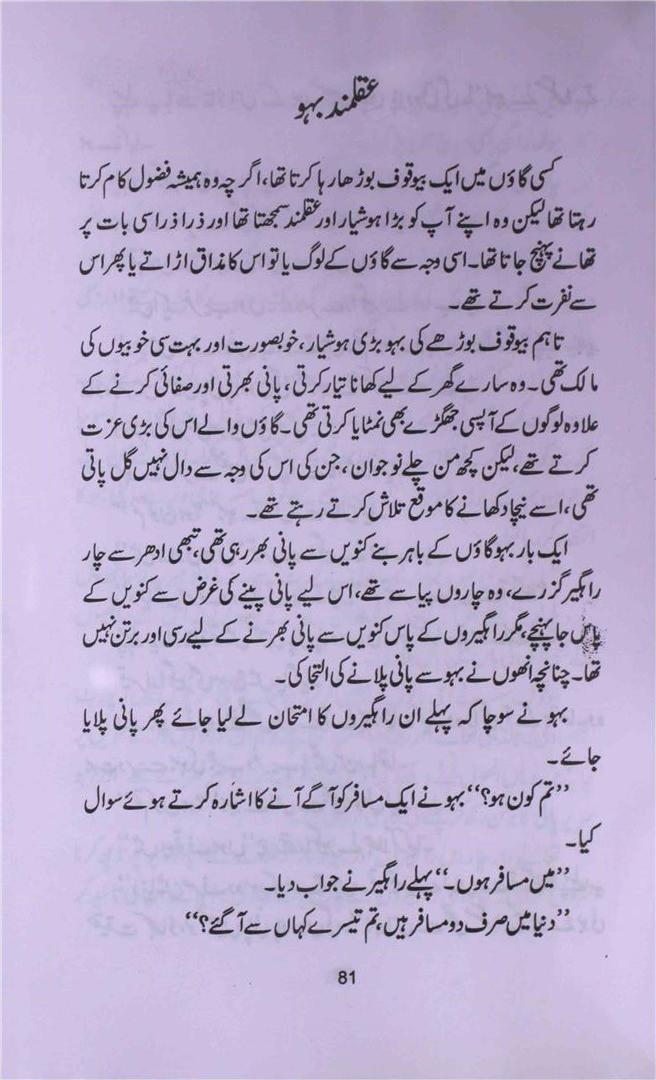 عقلمند بہو
کسی گاؤں میں ایک بیوقوف بوڑھا رہا کرتا تھا، اگرچہ وہ ہمیشہ فضول کام کرتا
رہتا تھا لیکن وہ اپنے آپ کو بڑا ہوشیار اور عقلمند سمجھتا تھا اور ذرا ذرا سی بات پر
تھانے پہنچ جاتا تھا۔ اسی وجہ سے گاؤں کے لوگ یا تو اس کا مذاق اڑاتے یا پھر اس
سے نفرت کرتے تھے۔
تاہم بیوقوف بوڑھے کی بہو بڑی ہوشیار، خوبصورت اور بہت سی خوبیوں کی
مالک تھی۔ وہ سارے گھر کے لیے کھانا تیار کرتی، پانی بھرتی اور صفائی کرنے کے
علاوہ لوگوں کے آپسی جھگڑے بھی نمٹایا کرتی تھی۔ گاؤں والے اس کی بڑی عزت
کرتے تھے، لیکن کچھ من چلے نوجوان، جن کی اس کی وجہ سے دال نہیں گل پاتی
تھی، اسے نیچا دکھانے کا موقع تلاش کرتے رہتے تھے۔
ایک بار بہو گاؤں کے باہر بنے کنویں سے پانی بھر رہی تھی، تبھی ادھر سے چار
راہگیر گزرے، وہ چاروں پیاسے تھے، اس لیے پانی پینے کی غرض سے کنویں کے
پاس جا پہنچے، مگر راہگیروں کے پاس کنویں سے پانی بھرنے کے لیے رسی اور برتن نہیں
تھا۔ چنانچہ انھوں نے بہو سے پانی پلانے کی التجا کی۔
بہو نے سوچا کہ پہلے ان راہگیروں کا امتحان لے لیا جائے پھر پانی پلایا
جائے۔
”تم کون ہو؟“ بہو نے ایک مسافر کو آگے آنے کا اشارہ کرتے ہوئے سوال
کیا۔
”میں مسافر ہوں۔“ پہلے راہگیر نے جواب دیا۔
”دنیا میں صرف دو مسافر ہیں، تم تیسرے کہاں سے آ گئے؟“
81